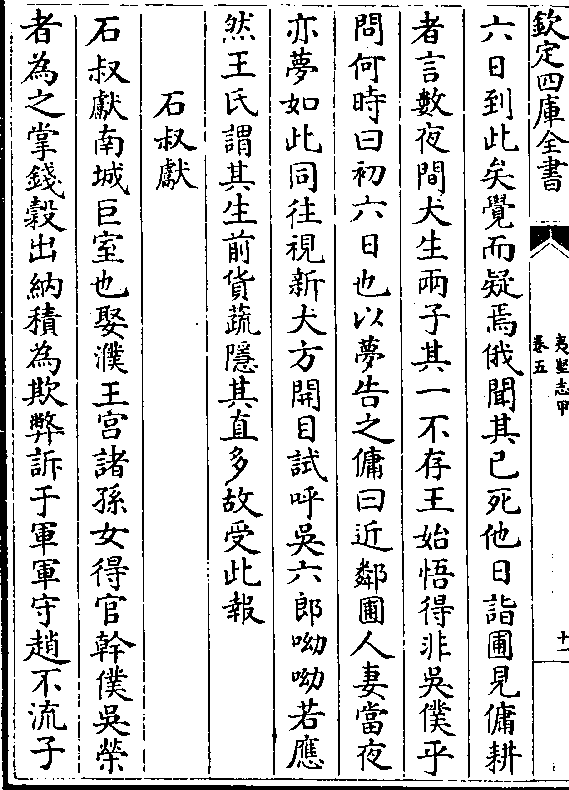 欽定四庫全書
夷堅志甲
卷五
十一
六日到此矣覺而疑焉俄聞其已死他日詣圃見傭耕
者言數夜間犬生兩子其一不存王始悟得非吳僕乎
問何時曰初六日也以夢告之傭曰近鄰圃人妻當夜
亦夢如此同往視新犬方開目試呼吳六郎呦呦若應
然王氏謂其生前貨蔬隱其直多故受此報
石叔獻
石叔獻南城巨室也娶濮王宮諸孫女得官幹僕吳榮
者為之掌錢穀出納積為欺弊訴于軍軍守趙不流子